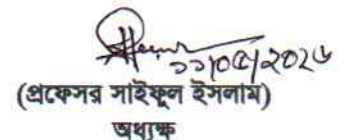 ১১/০৫/২০২৬
(প্রফেসর সাইফুল ইসলাম)
অধ্যক্ষ